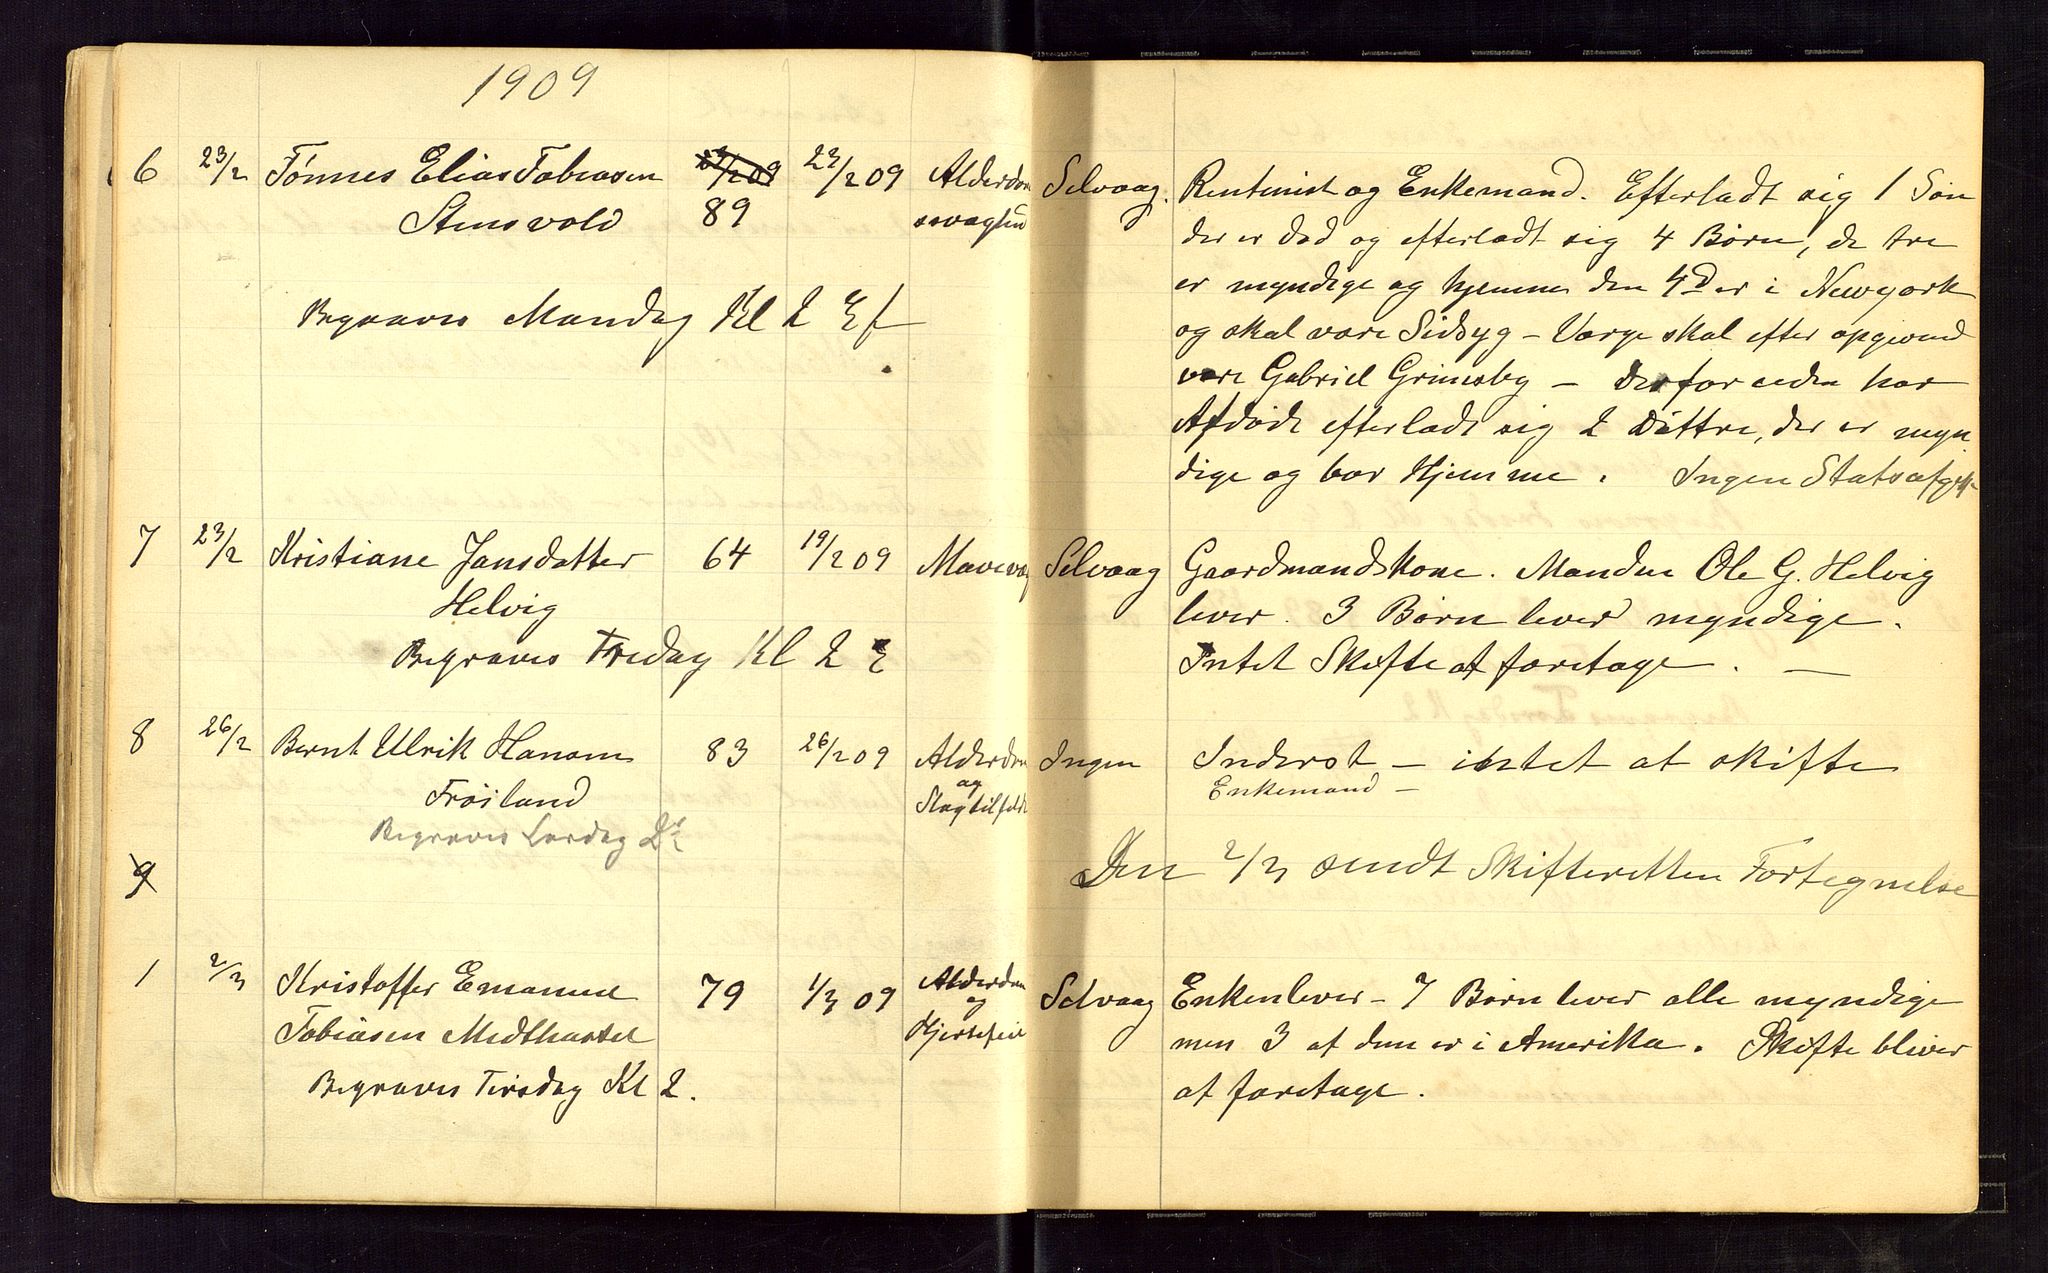 1909
6 23/2 Tønnes Elias Tobiasen 23/2 09 23/2 09 Alderdom Selvaag. Rentenist og Enkemand. Efterladt sig 1 Søn
Stensvold 89 svaghed der er død og efterladt sig 4 Børn, de tre
er myndige og hjemme den 4d er i Newyork
Begraves Mandag Kl 2 Ef og skal være Sidsyg - Værge skal efter opgivend
være Gabriel Grimsby - Desforuden har
Afdøde efterladt sig 2 Døttre, der er myn
dige og bor Hjemme. Ingen Statsafgift
7 23/2 Kristiane Jansdatter 64 19/2 09 Mave Selvaag Gaardmandskone. Manden Ole G. Helvig
Helvig lever. 3 Børn lever myndige.
Begraves Fredag Kl 2 E Intet Skifte at foretage. —
8 26/2 Bernt Ulrik Hansen 83 26/2 09 Alderdom Ingen Inderst - intet at skifte
Frøiland og Enkemand -
Slagtilfælde
Begraves Lørdag
9 Den 2/3 sendt Skifteretten Fortegnelse
1 2/3 Kristoffer Emanuel 79 1/3 09 Alderdom Selvaag Enken lever - 7 Børn lever alle myndige
Tobiasen Midthassel og Hjertefeil men 3 af dem er i Amerika. Skifte bliver
Begraves Tirsdag Kl 2. at foretage.